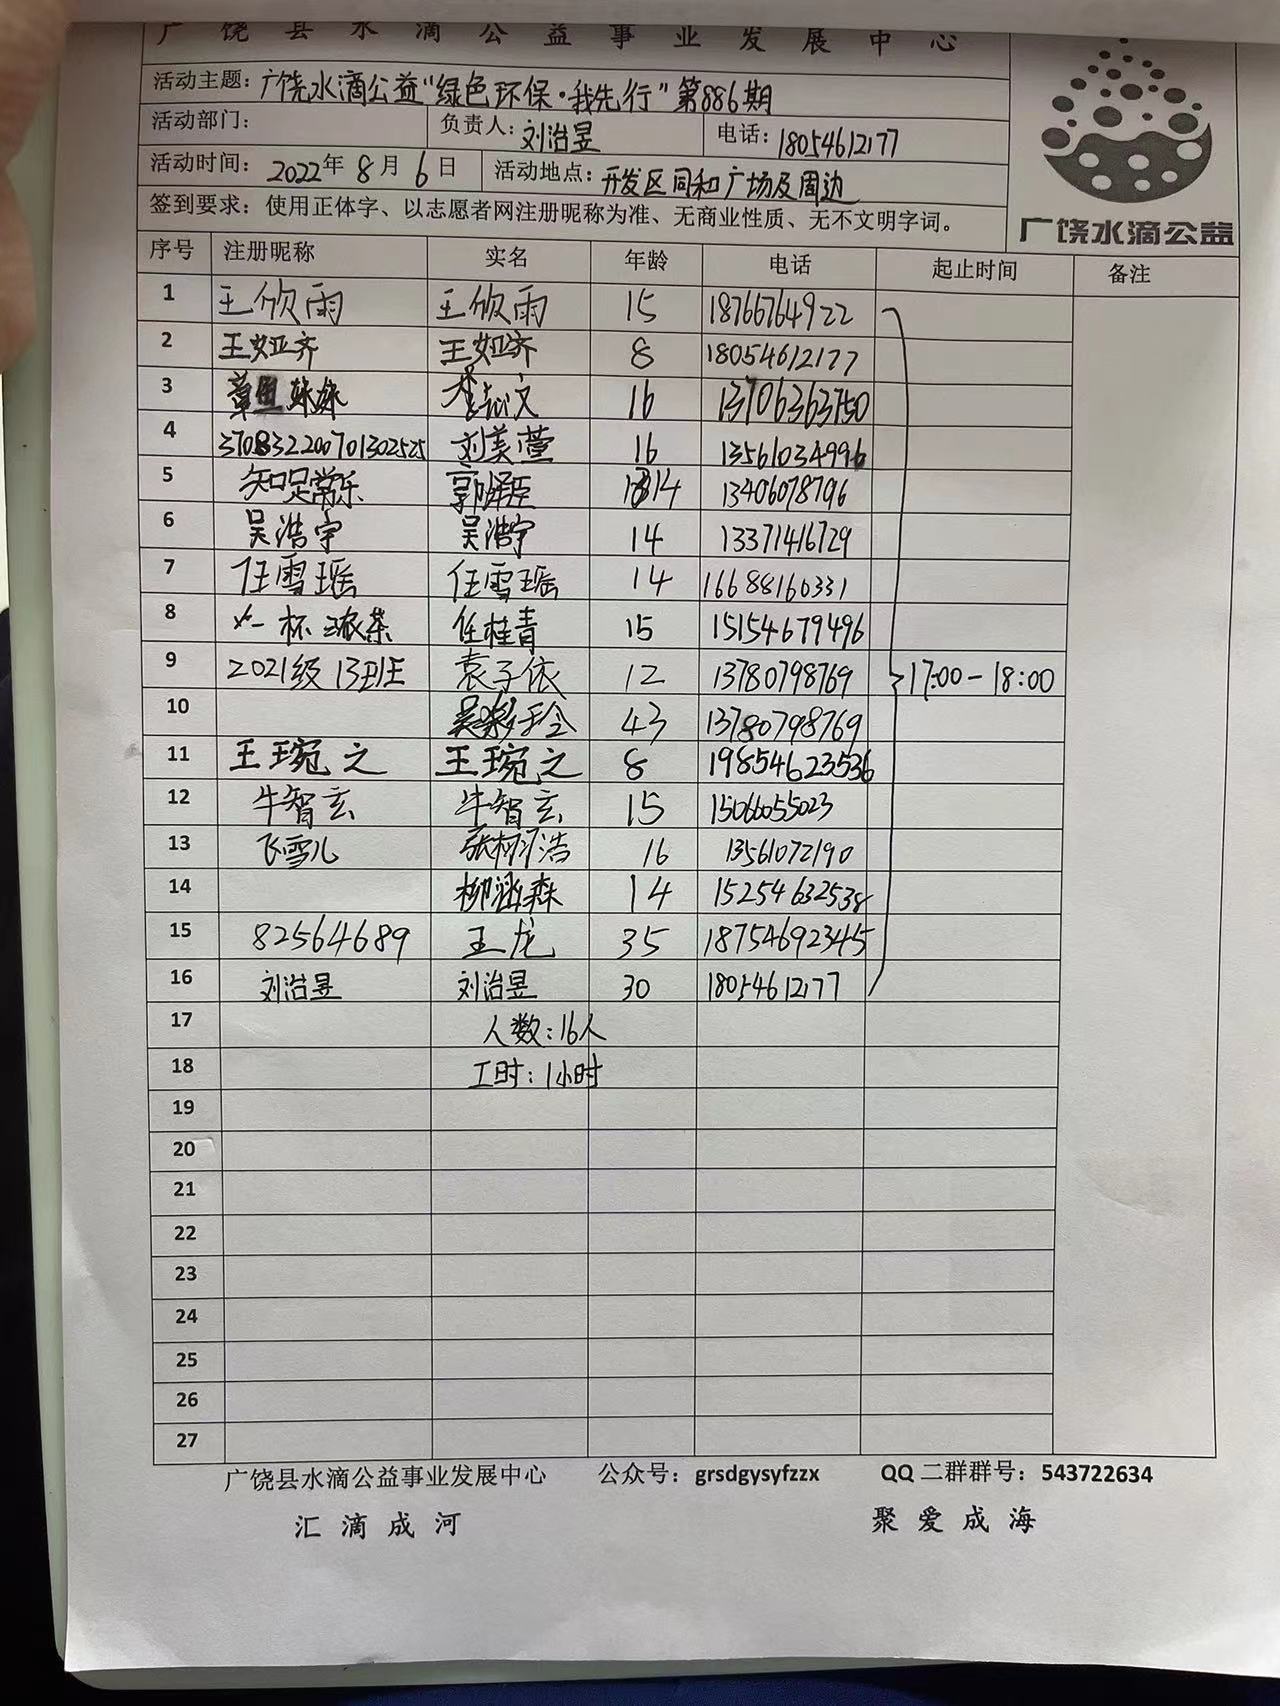 广饶县水滴公益事业发展中心
活动主题：广饶水滴公益“绿色环保·我先行”第886期
活动部门： 负责人：刘治昱 电话：18054612177
活动时间：2022年8月6日 活动地点：开发区同和广场及周边
签到要求：使用正体字、以志愿者网注册昵称为准、无商业性质、无不文明字词。
广饶水滴公益
序号 注册昵称 实名 年龄 电话 起止时间 备注
1 王欣雨 王欣雨 15 18766764922
2 王如亚齐 王如亚齐 8 18054612177
3 16 13706363750
4 刘美萱 16 13561034996
5 知足常乐 郭泽臣 14 13406078796
6 吴浩宇 吴浩宇 14 13371416729
7 任雪瑶 任雪瑶 14 16688160331
8 一杯浓茶 任桂青 15 15154679496
9 2021级13班 袁子依 12 13780798769 17:00-18:00
10 43 13780798769
11 王琬之 王琬之 8 19854623536
12 牛智玄 牛智玄 15 15066055023
13 飞雪儿 张柯浩 16 13561072190
14 柳涵森 14 15254632538
15 82564689 王龙 35 18754692345
16 刘治昱 刘治昱 30 18054612177
17 人数：16人
18 工时：1小时
19
20
21
22
23
24
25
26
27
广饶县水滴公益事业发展中心 公众号：grsdgysyfzzx QQ二群群号：543722634
汇滴成河 聚爱成海